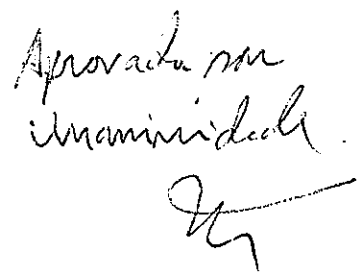 Aprovada por
unanimidade.